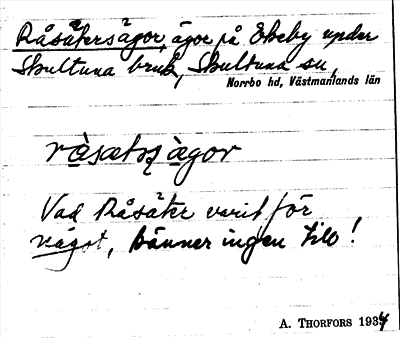 Råsätersägor, ägor på Ekeby under
Skultuna bruk, Skultuna sn,
Norrbo hd, Västmanlands län
ràsætəʂ àgor
Vad Råsäter varit för
något, känner ingen till!
A. THORFORS 1934